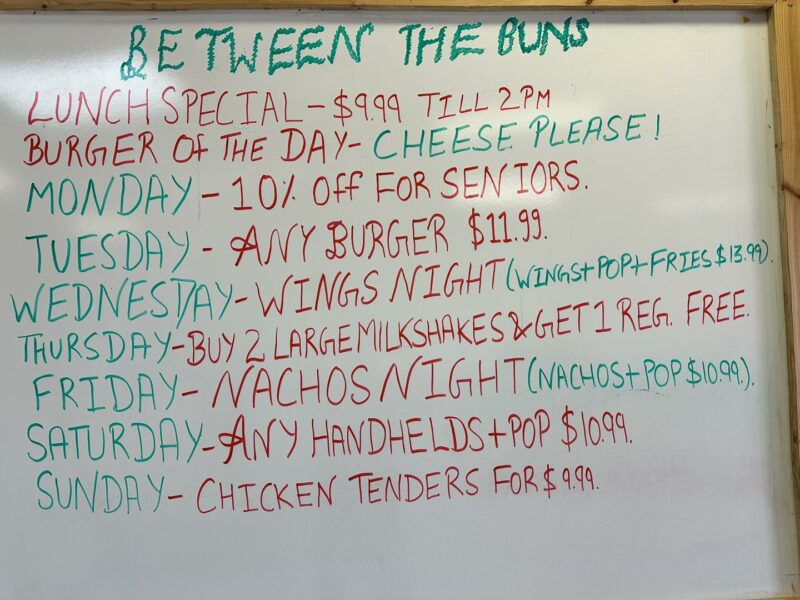 BETWEEN THE BUNS
LUNCH SPECIAL - $9.99 TILL 2PM
BURGER OF THE DAY - CHEESE PLEASE!
MONDAY - 10% OFF FOR SENIORS.
TUESDAY - ANY BURGER $11.99.
WEDNESDAY - WINGS NIGHT (WINGS + POP + FRIES $13.99).
THURSDAY - BUY 2 LARGE MILKSHAKES & GET 1 REG. FREE.
FRIDAY - NACHOS NIGHT (NACHOS + POP $10.99.).
SATURDAY - ANY HANDHELDS + POP $10.99.
SUNDAY - CHICKEN TENDERS FOR $9.99.